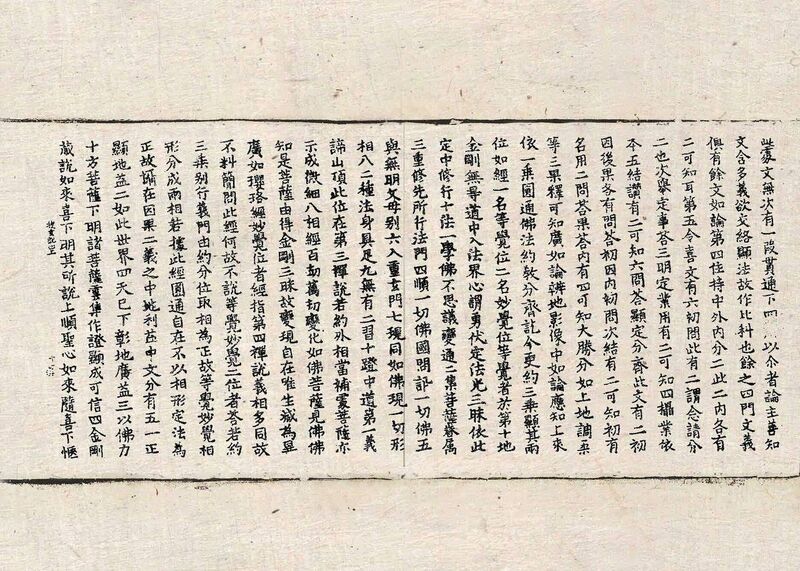 此處文無次有一段貫通下四 以介者論主善知
文含多義欲交絡顯法故作比科也餘之四門文義
俱有餘文如論第四住持中外內分二此二內各有
二可知耳第五令喜文有六初問此有二謂念請分
二也次舉定事答三明定業用有二可知四攝業依
本五結讚有二可知六問答顯定分齊此文有二初
因後果各有問答初因內初問次結有二可知初有
名用二問答果答內有四可知大勝分如上地調柔
等三果釋可知廣如論辨地影像中如論應知上來
依一乘圓通佛法約教分齊訖今更約三乘顯其兩
位如經一名等覺位二名妙覺位等覺者於第十地
金剛無导道中入法界心謂勇伏定法光三昧依此
定中修行十法一學佛不思議變通二集菩薩眷属
三重修先所行法門四順一切佛國問訊一切佛五
與無明父母別六入重玄門七現同如佛現一切形
相八二種法身具足九無有二習十蹬中道第一義
諦山頂此位在第三禪說若約外相當補處菩薩亦
示成微細八相經百劫萬劫變化如佛菩薩見佛佛
知是菩薩由得金剛三昧故變現自在唯生滅為異
廣如瓔珞經妙覺位者經指第四禪說義相多同故
不料簡問此經何故不說等覺妙覺二位者答若約
三乘別行義門由約分位取相為正故等覺妙覺相
形分成兩相若據此經圓通自在不以相形定法為
正故備在因果二義之中地利益中文分有五一正
顯地益二如此世界四天已下彰地廣益三以佛力
十方菩薩下明諸菩薩雲集作證顯成可信四金剛
藏說如來喜下明其所說上順聖心如來隨喜下愜